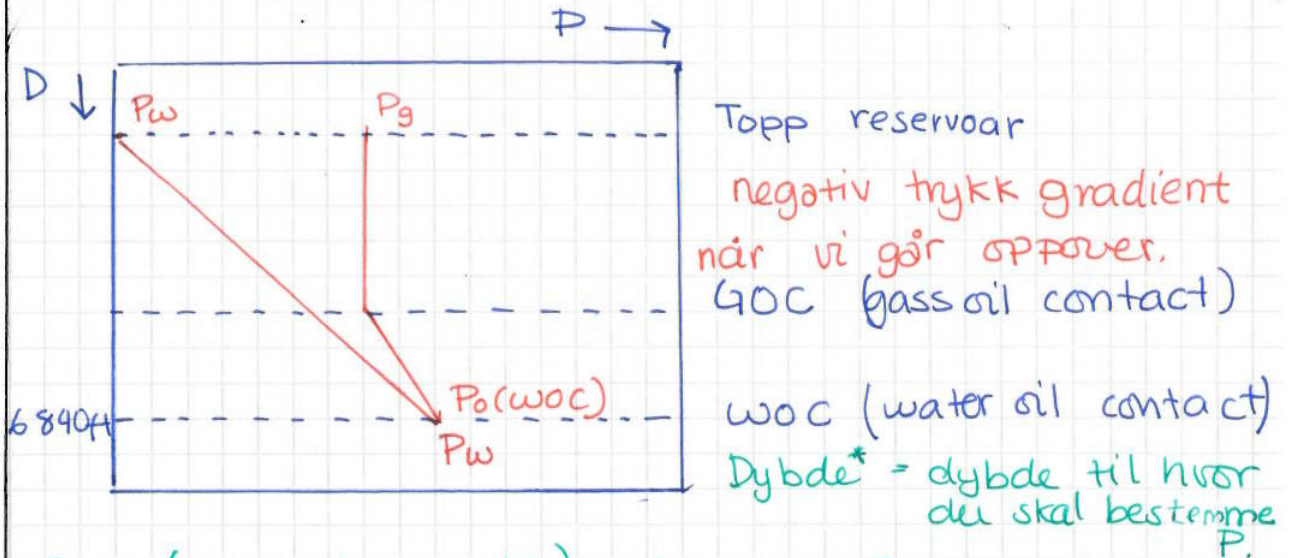 P →
D ↓
Pw
Pg
Topp reservoar
negativ trykk gradient
når vi går oppover.
GOC (gass oil contact)
Po(woc)
6840ft
WOC (water oil contact)
Pw
Dybde* = dybde til hvor
du skal bestemme
P.